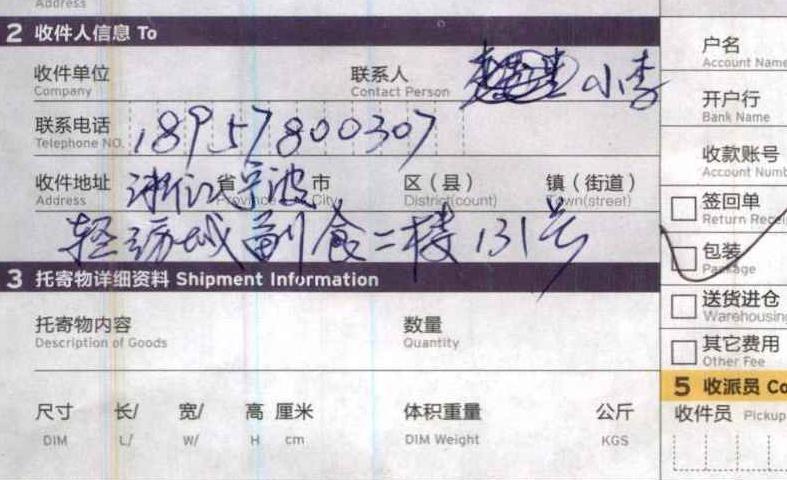 Address
2 收件人信息 To
收件单位 联系人 小李
Company Contact Person
联系电话 18957800307
Telephone NO.
收件地址 浙江 省 宁波 市 区(县) 镇(街道)
Address Province City District(count) Town(street)
轻纺城副食二楼131号
3 托寄物详细资料 Shipment Information
托寄物内容 数量
Description of Goods Quantity
尺寸 长/ 宽/ 高 厘米 体积重量 公斤
DIM L/ W/ H cm DIM Weight KGS
户名
Account Name
开户行
Bank Name
收款账号
Account Numb
签回单
Return Recei
包装
Package
送货进仓
Warehousing
其它费用
Other Fee
5 收派员 Co
收件员 Pickup